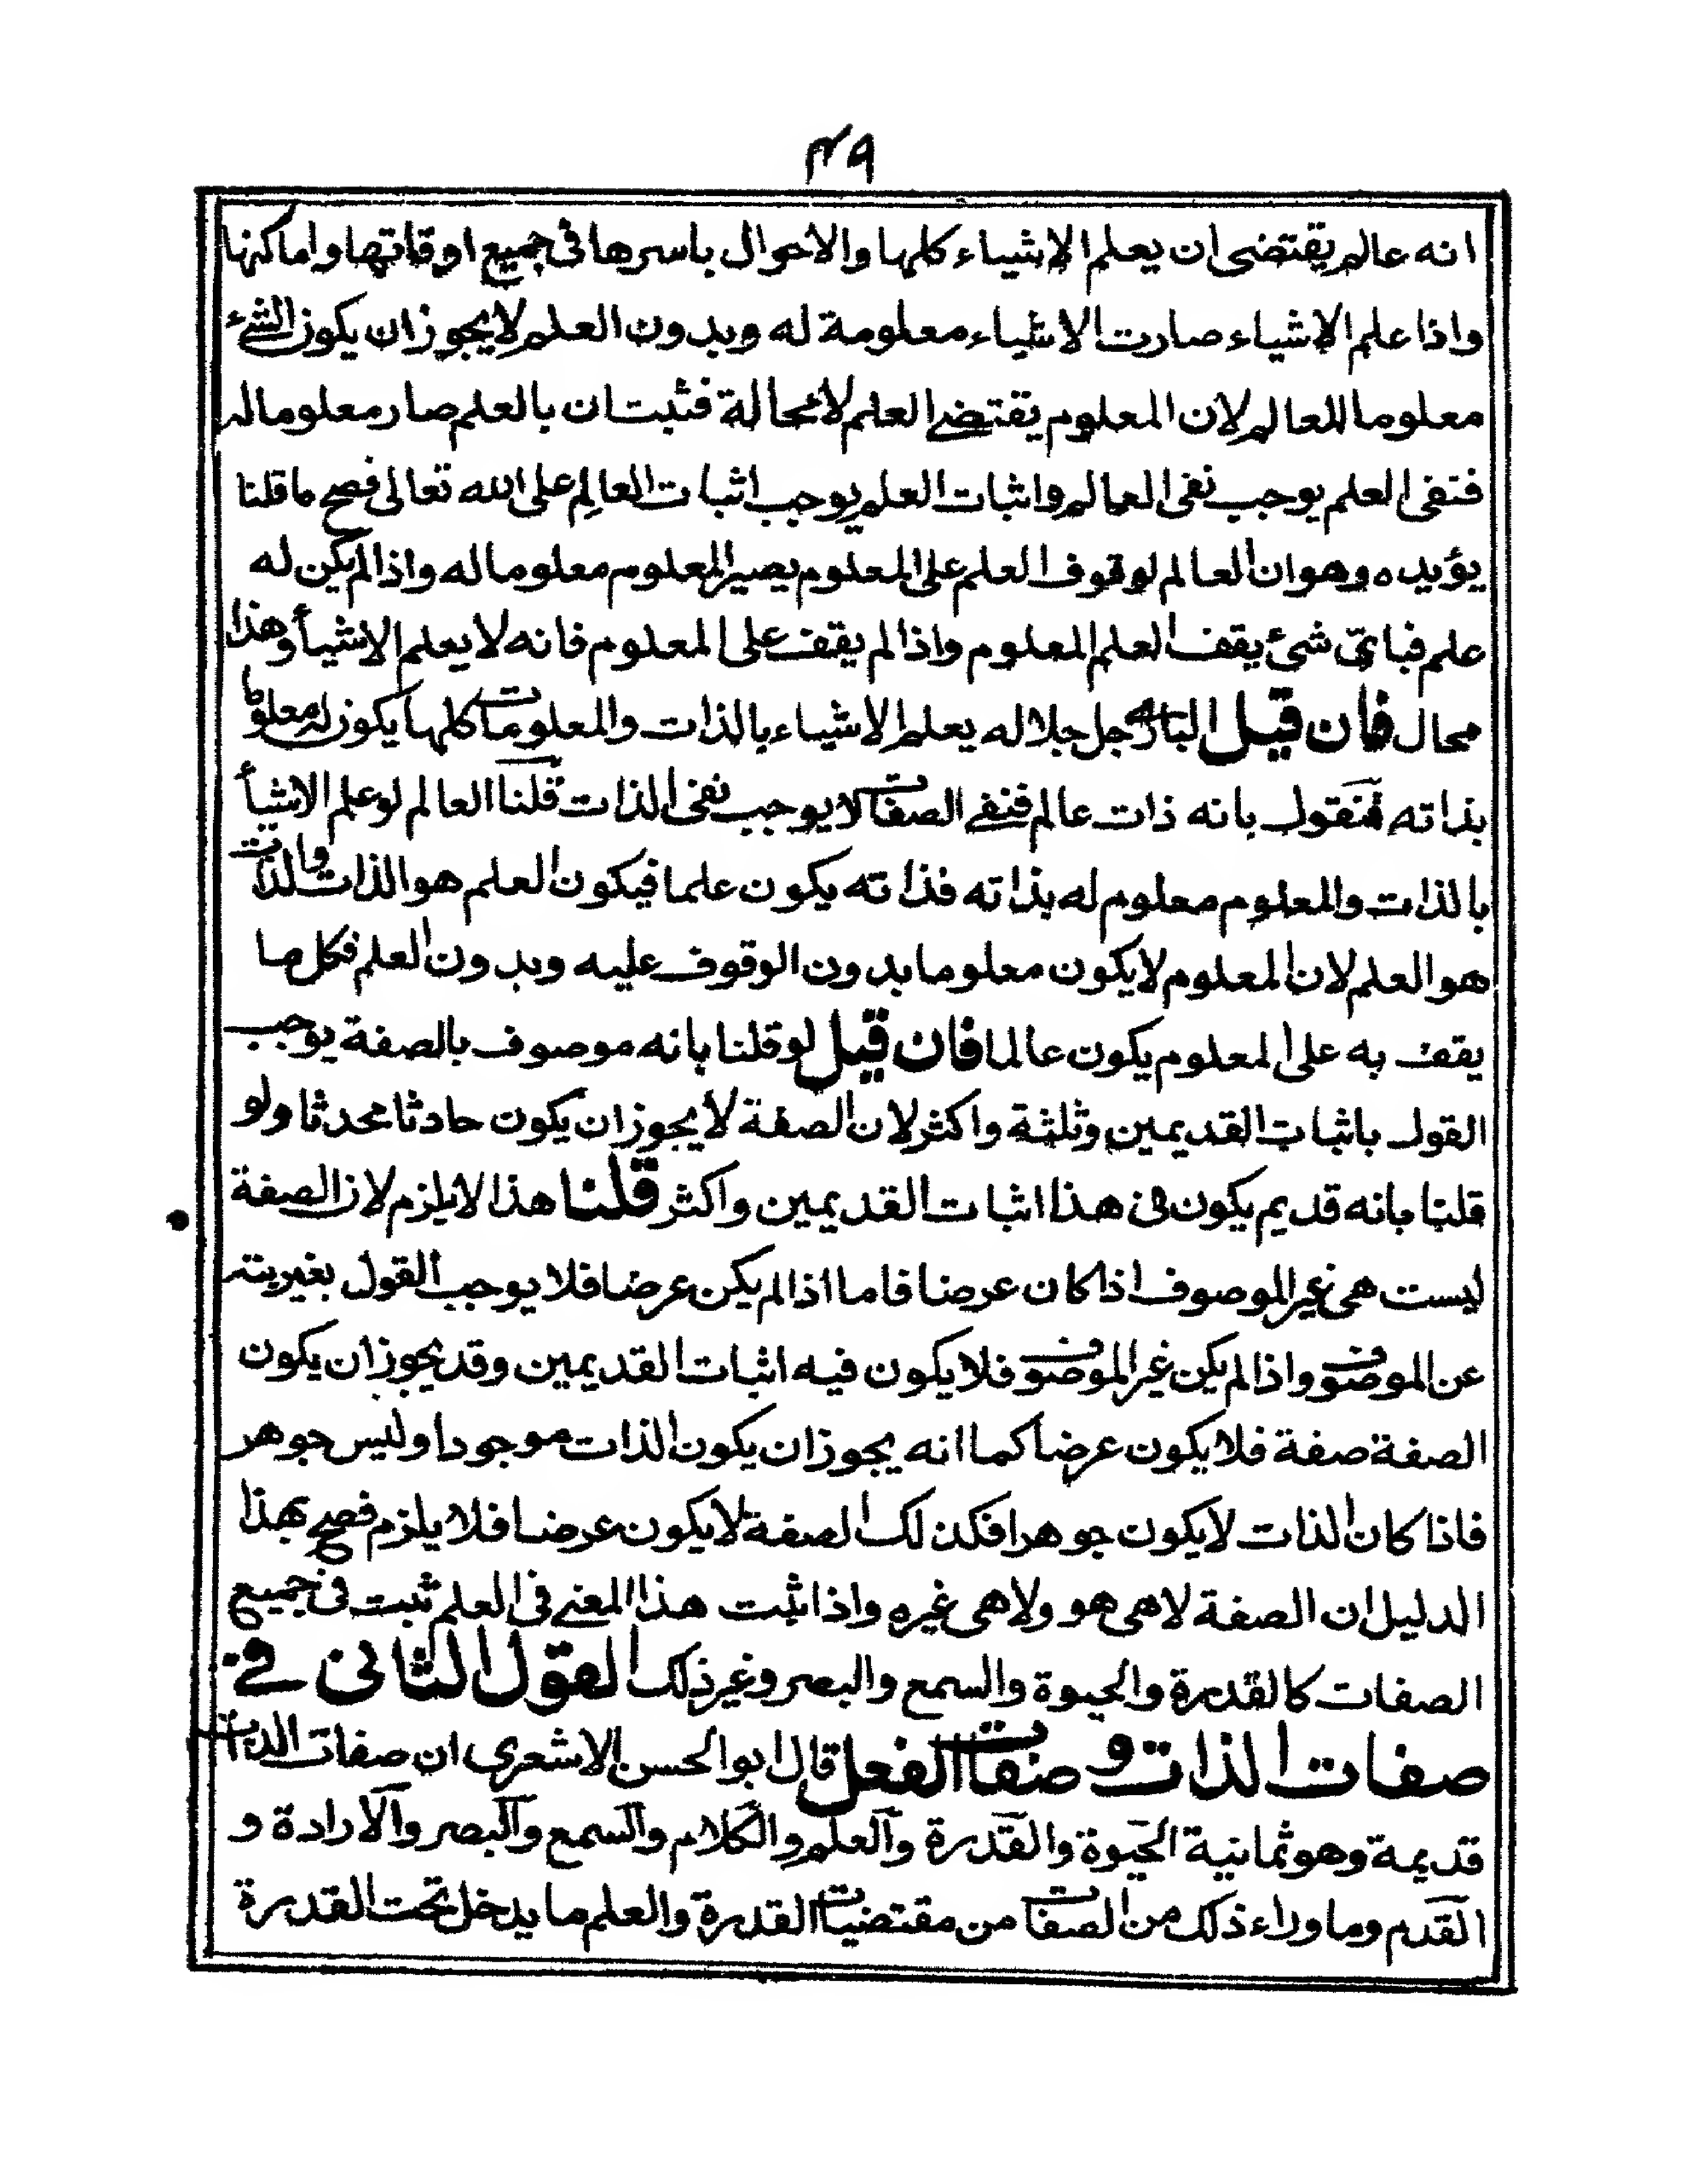 ۴۹
انه عالم يقتضى ان يعلم الاشياء كلها والاحوال باسرها فى جميع اوقاتها واماكنها
واذا علم الاشياء صارت الاشياء معلومة له وبدون العلم لا يجوز ان يكون الشئ
معلوما للعالم لان المعلوم يقتضى العلم لا محالة فثبت ان بالعلم صار معلوما له
فنفى العلم يوجب نفى العالم واثبات العلم يوجب اثبات العالِم على الله تعالى فصح ما قلنا
يؤيده وهو ان العالم لوقوف العلم على المعلوم يصير المعلوم معلوما له واذا لم يكن له
علم فباىّ شئ يقف العلم المعلوم واذا لم يقف على المعلوم فانه لا يعلم الاشيأ وهذا
محال فان قيل البارى جل جلاله يعلم الاشياء بالذات والمعلومات كلها يكون له معلوما
بذاته فنقول بانه ذات عالم فنفى الصفات لا يوجب نفى الذات قلنا العالم لو علم الاشيأ
بالذات والمعلوم معلوم له بذاته فذاته يكون علما فيكون العلم هو الذات والذات
هو العلم لان المعلوم لا يكون معلوما بدون الوقوف عليه وبدون العلم فكل ما
يقف به على المعلوم يكون عالما فان قيل لو قلنا بانه موصوف بالصفة يوجب
القول باثبات القديمين وثلثة واكثر لان الصفة لا يجوز ان يكون حادثا محدثا ولو
قلنا بانه قديم يكون فى هذا اثبات القديمين واكثر قلنا هذا لا يلزم لان الصفة
ليست هى غير الموصوف اذا كان عرضا فاما اذا لم يكن عرضا فلا يوجب القول بغيريته
عن الموصوف واذا لم يكن غير الموصوف فلا يكون فيه اثبات القديمين وقد يجوز ان يكون
الصفة صفة فلا يكون عرضا كما انه يجوز ان يكون الذات موجودا وليس جوهر
فاذا كان الذات لا يكون جوهرا فكذلك الصفة لا يكون عرضا فلا يلزم فصح بهذا
الدليل ان الصفة لا هى هو ولا هى غيره واذا ثبت هذا المعنى فى العلم ثبت فى جميع
الصفات كالقدرة والحيوة والسمع والبصر وغير ذلك القول الثانى فى
صفات الذات و صفات الفعل قال ابو الحسن الاشعرى ان صفات الذات
قديمة وهو ثمانية الحيوة والقدرة والعلم والكلام والسمع والبصر والارادة و
القدم وما وراء ذلك من الصفات من مقتضيات القدرة والعلم ما يدخل تحت القدرة